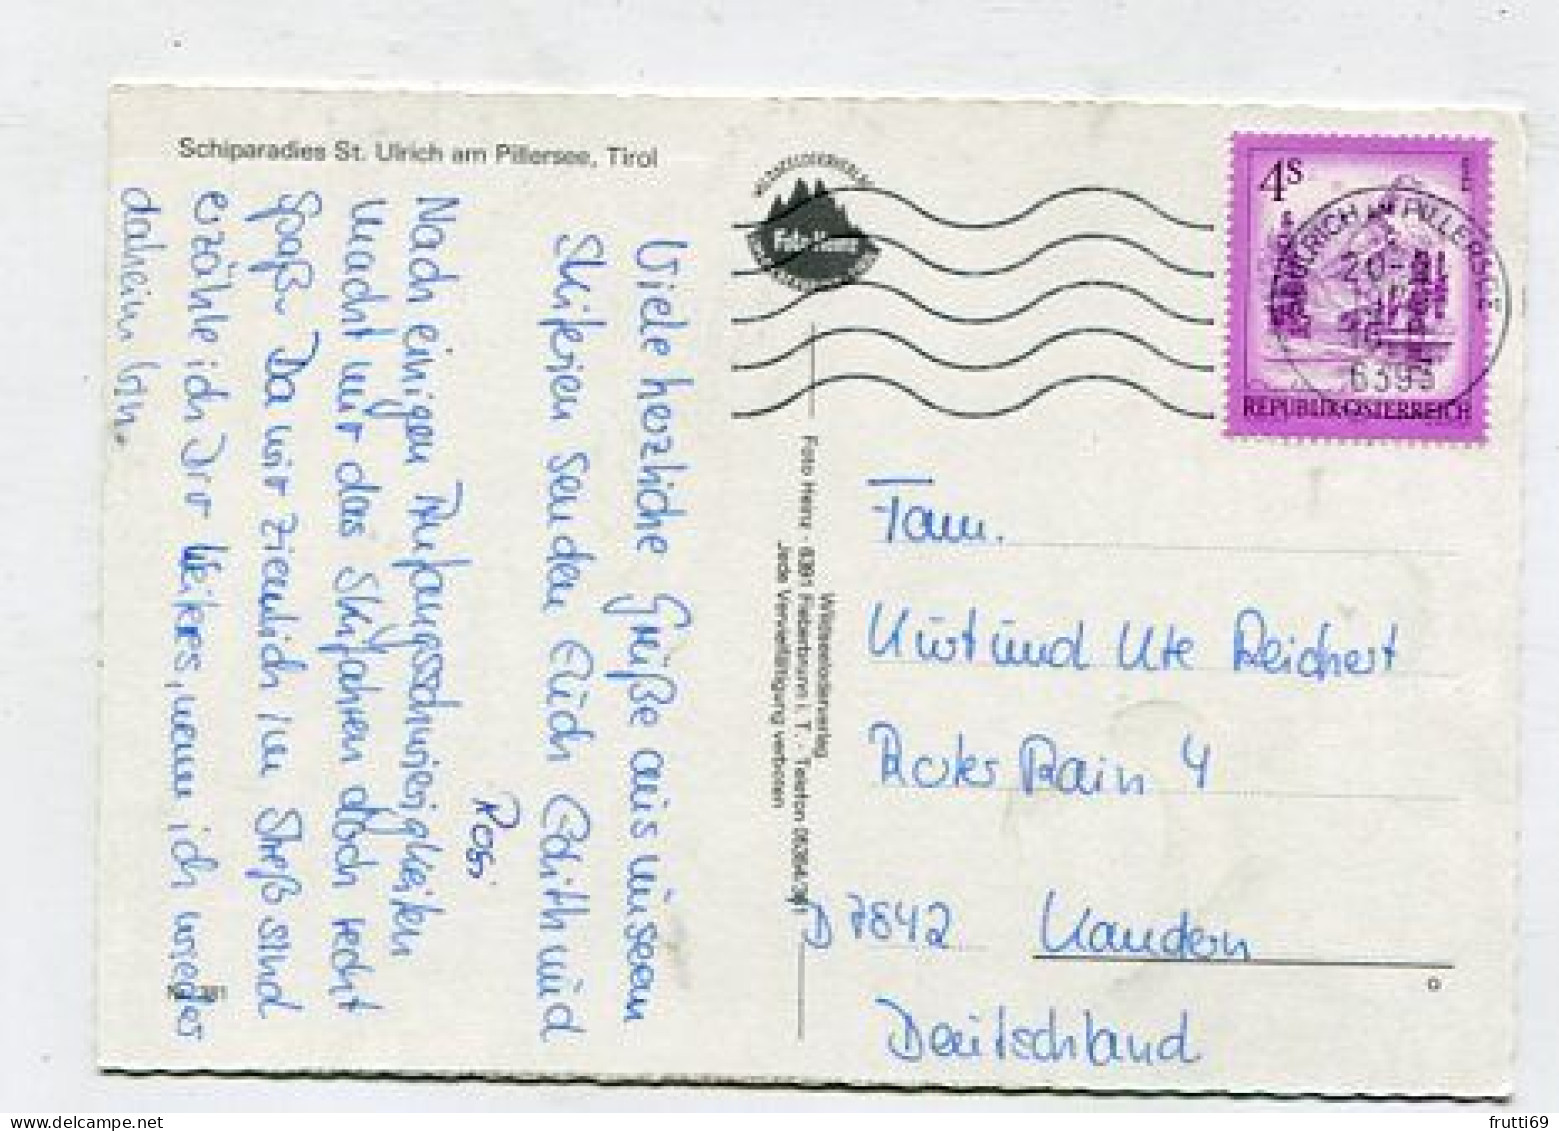 Schiparadies St. Ulrich am Pillersee, Tirol
Viele herzliche Grüße aus unseren
Skiferien senden Euch Edith und
Rosi
Nach einigen Anfangsschwierigkeiten
macht mir das Skifahren doch recht
Spaß. Da wir ziemlich im Streß sind
erzähle ich Irr Weiters, wenn ich wieder
daheim bin.
Nr. 381
Foto Heinz
Wildseeloderverlag
Foto Heinz - 6391 Fieberbrunn i. T. - Telefon 05354/
Jede Vervielfältigung verboten
4S
REPUBLIK ÖSTERREICH
ST. ULRICH AM PILLERSEE
6393
Fam.
Kurt und Ute Reichert
Roter Rain 4
D 7842 Kandern
Deutschland
frutti69